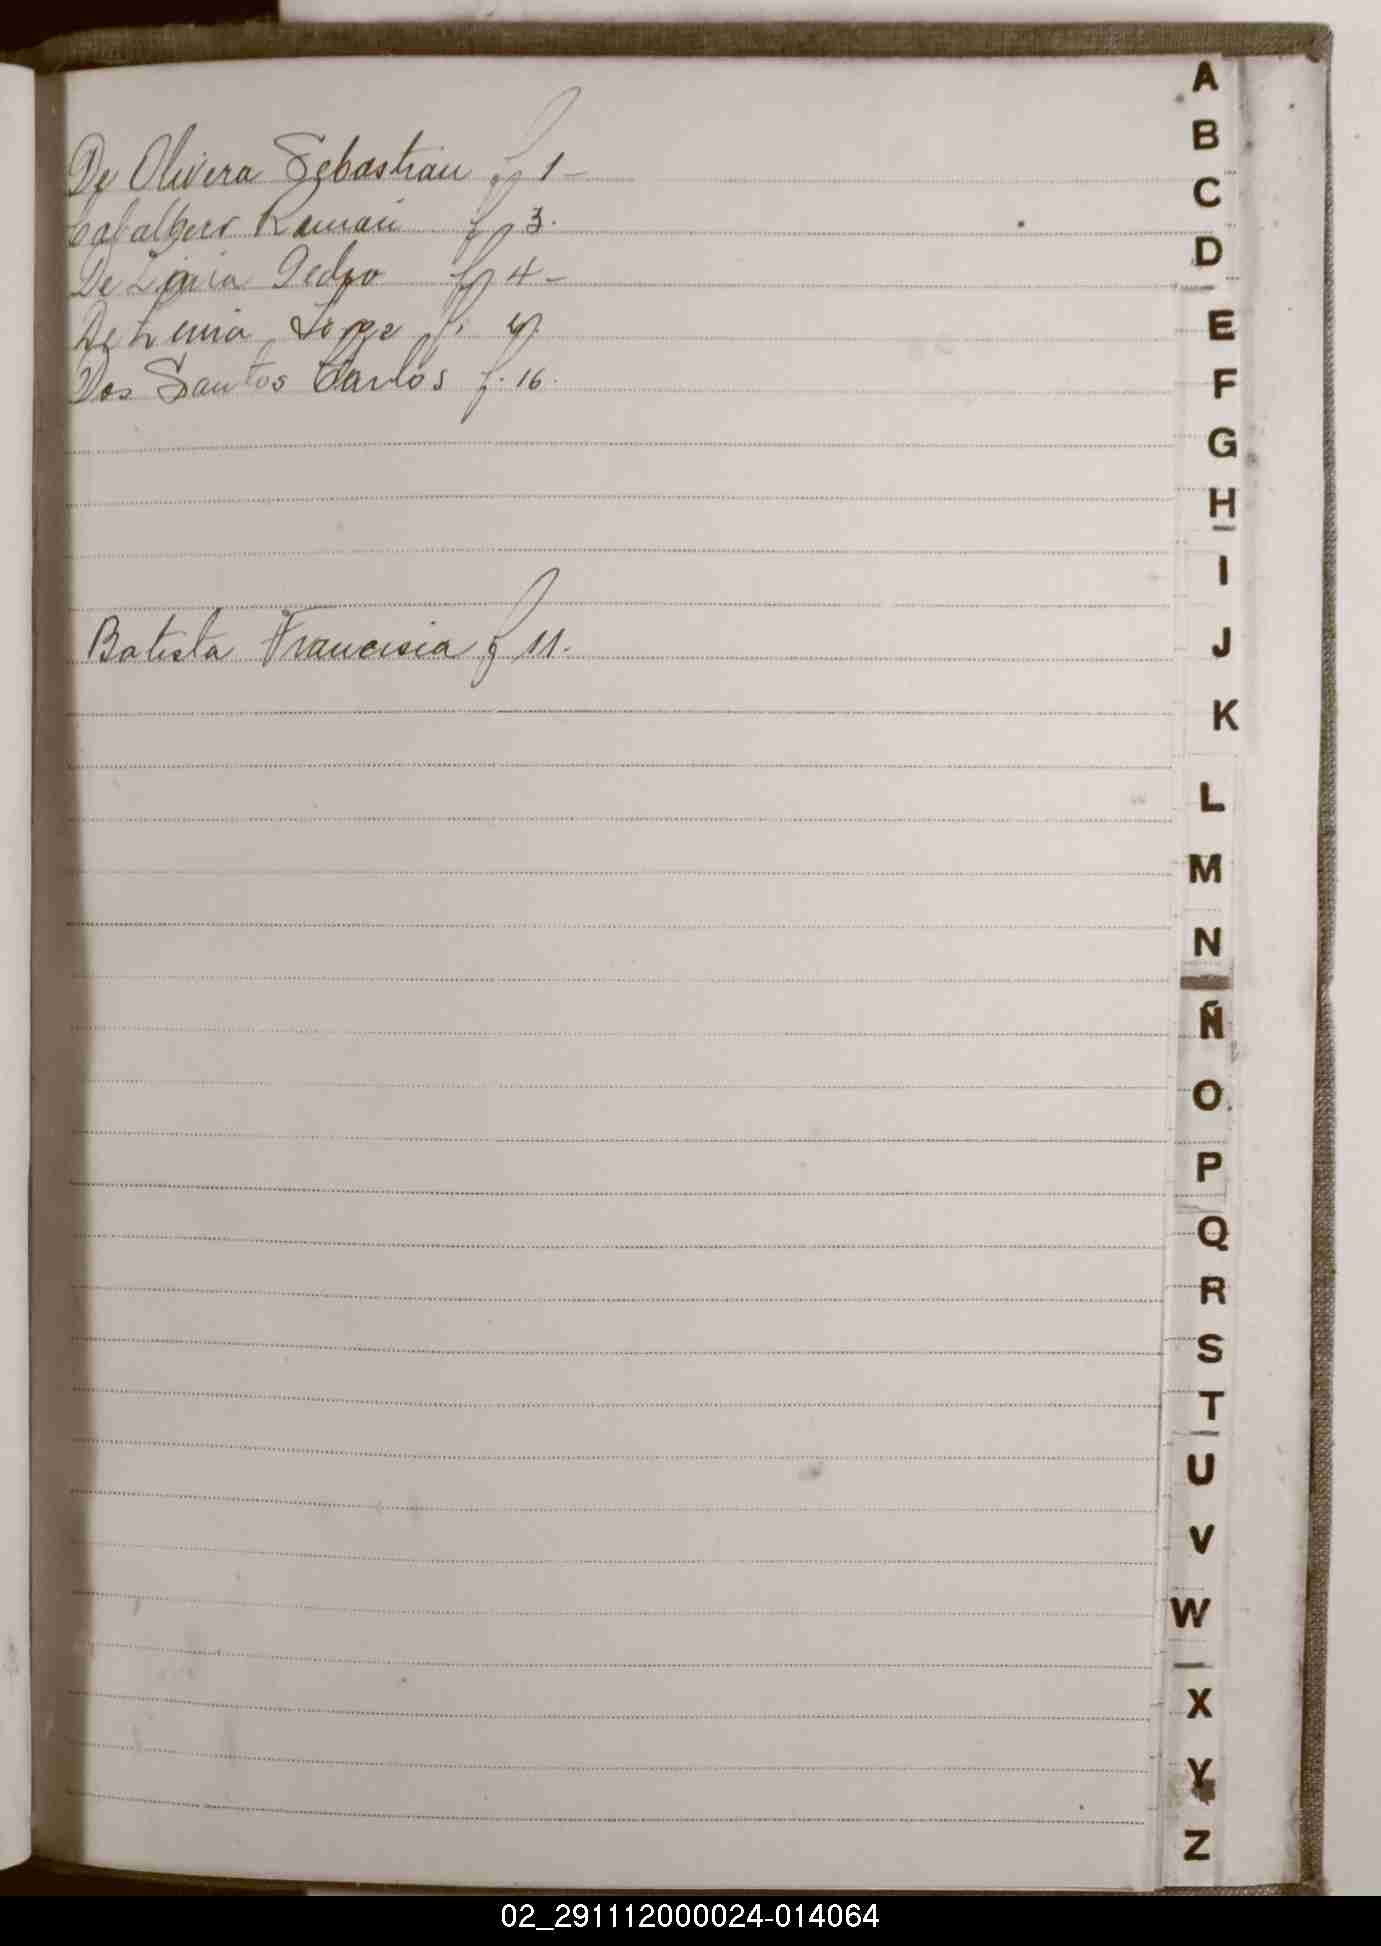 De Olivera Sebastian f 1 -
Ramón f 3.
De Pedro f 4 -
De Jorge f.
Dos Santos Carlos f. 16.
Batista Francisca f 11.
A
B
C
D
E
F
G
H
I
J
K
L
M
N
Ñ
O
P
Q
R
S
T
U
V
W
X
Y
Z
02_291112000024-014064